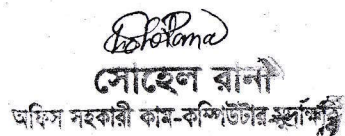 সোহেল রানা
অফিস সহকারী কাম-কম্পিউটার মুদ্রাক্ষরিক